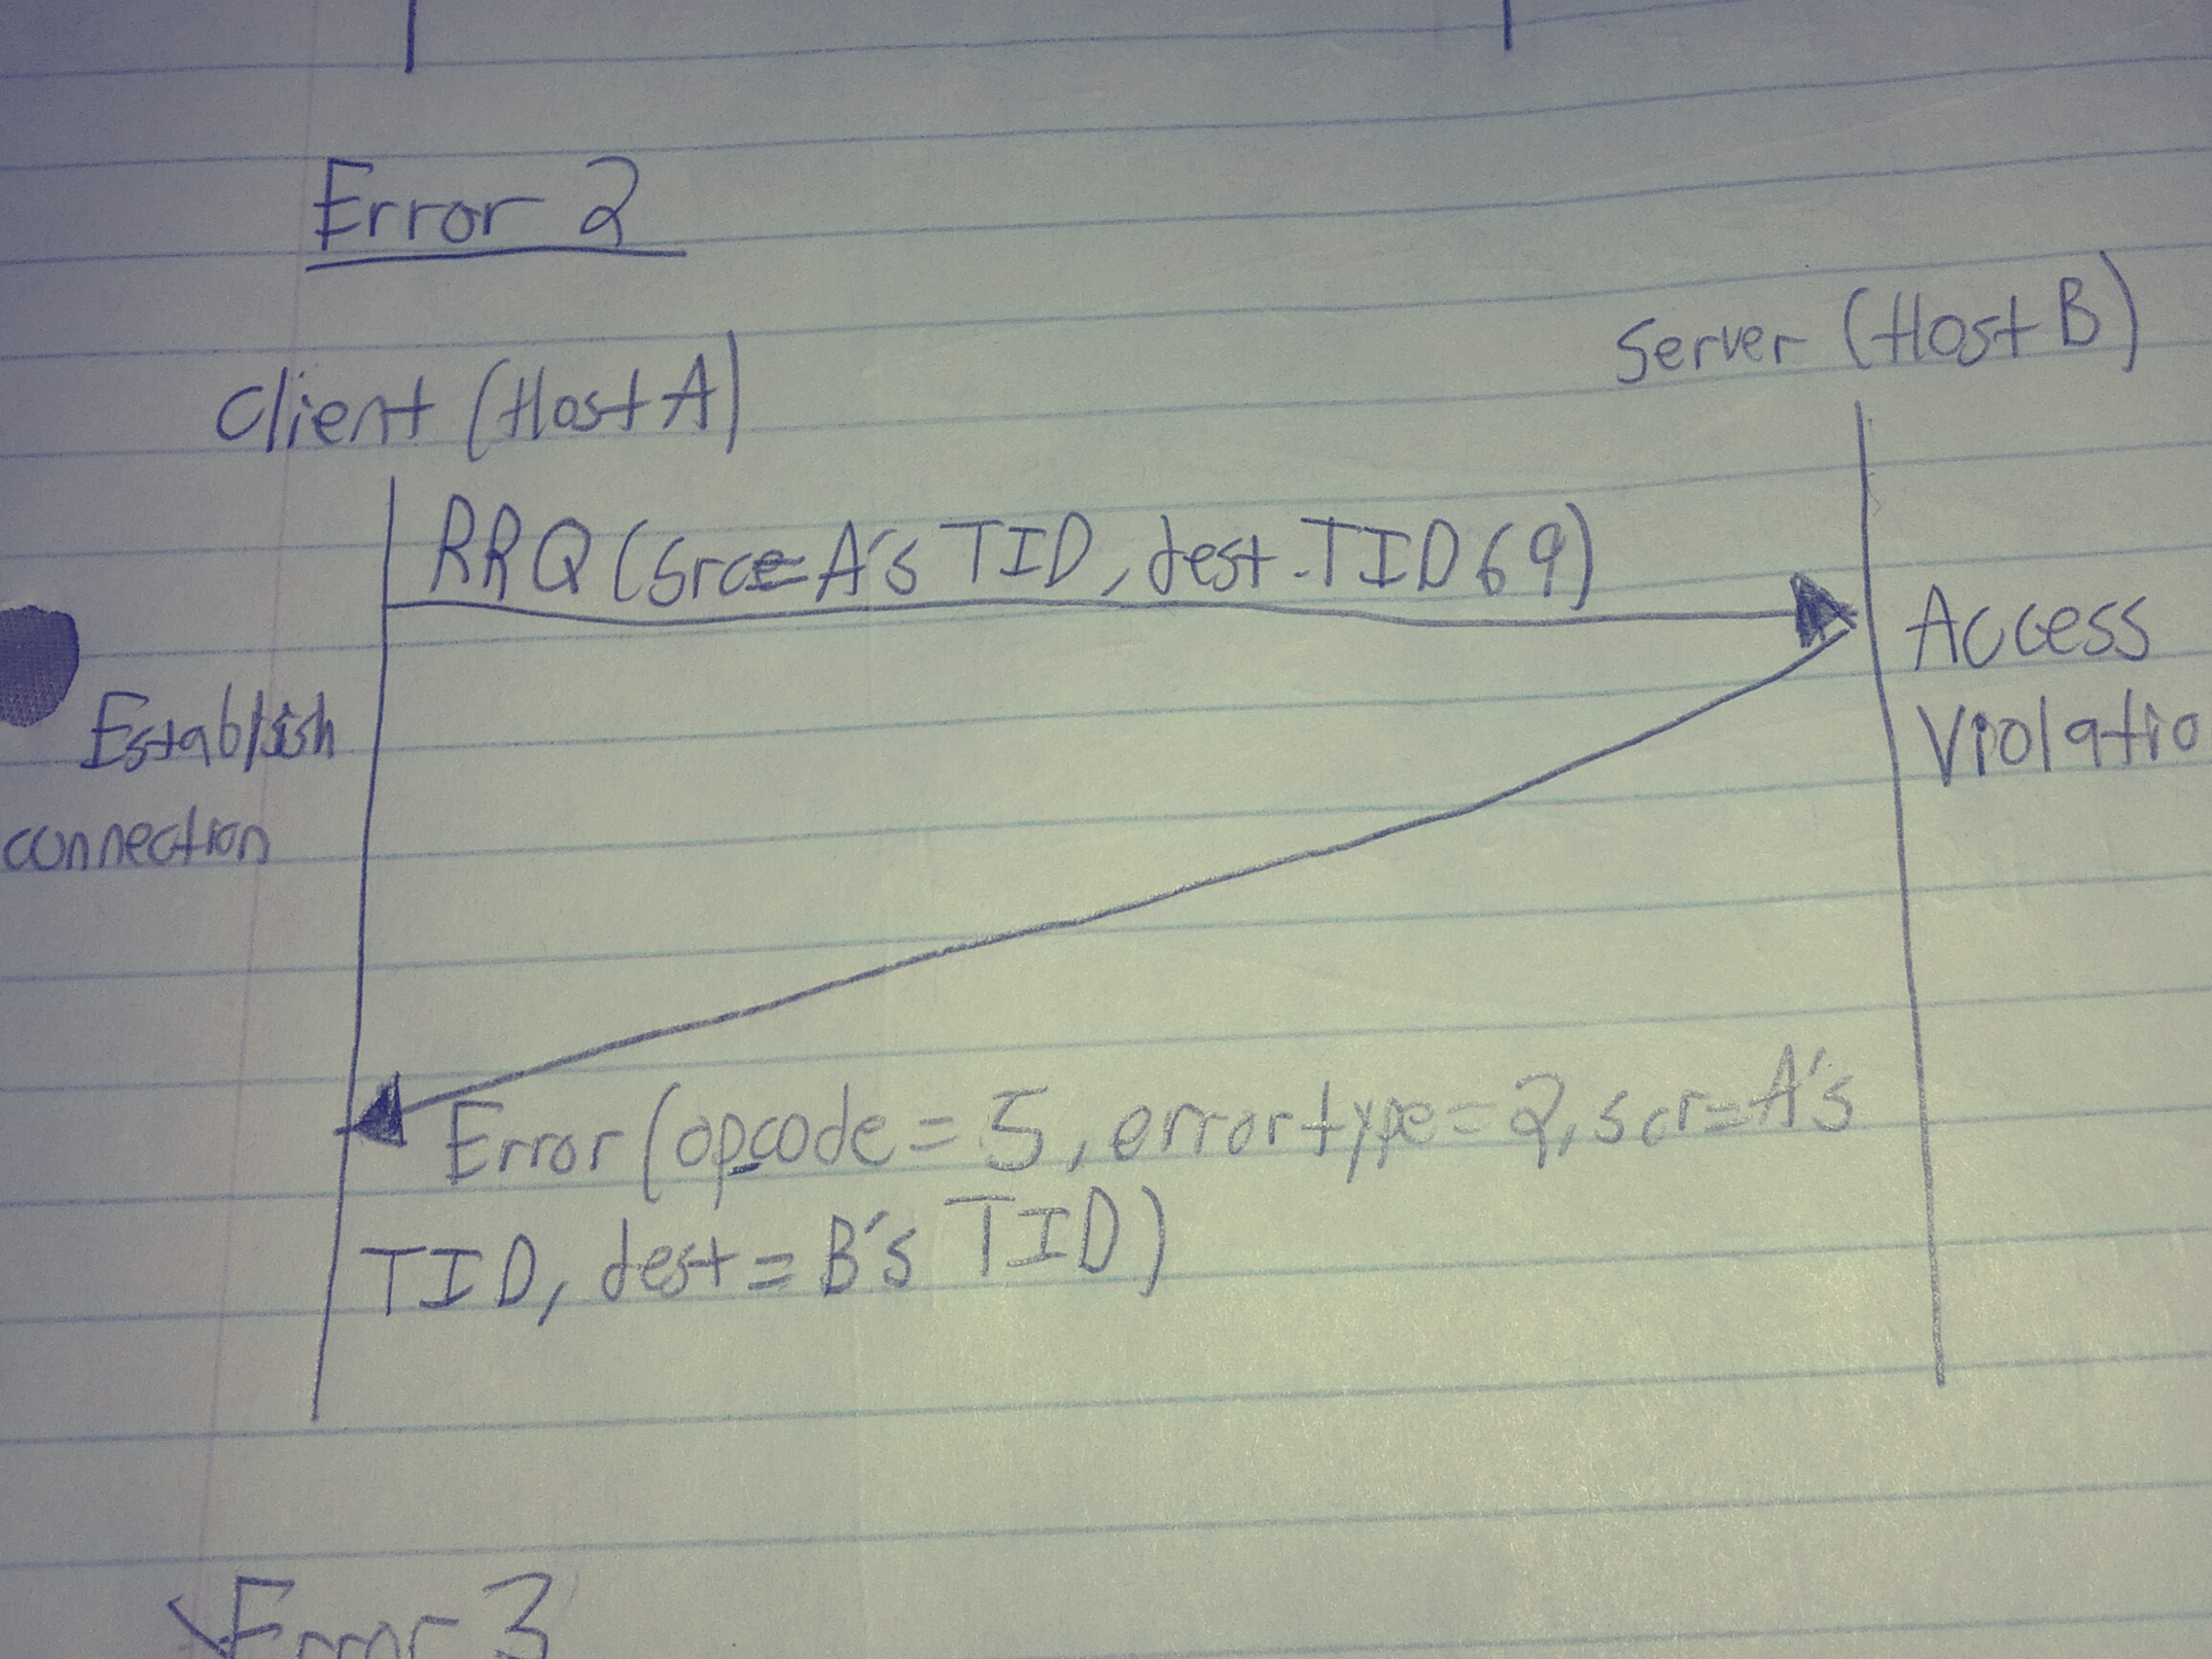 Error 2
Client (Host A)
Server (Host B)
RRQ (srce=A's TID, dest.TID 69)
Access
Violatio
Establish
connection
Error (opcode = 5, error type = 2, scr=A's
TID, dest = B's TID)
Error 3